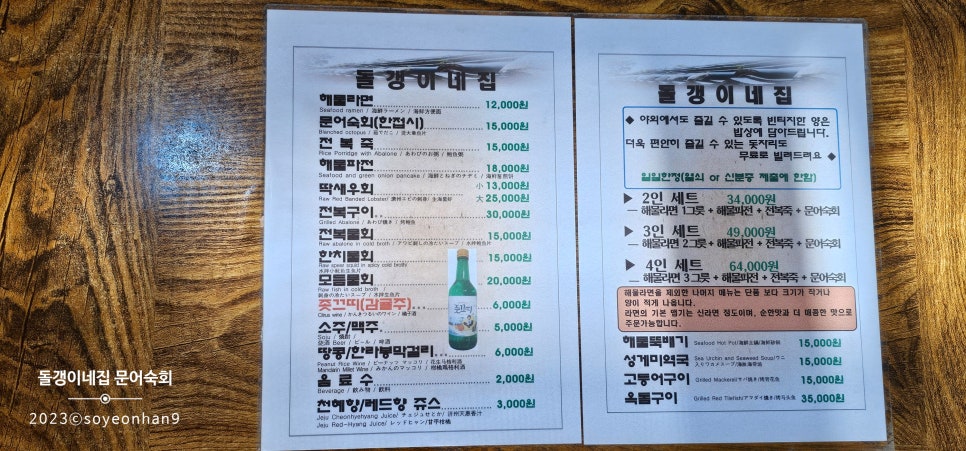 돌갱이네집
해물라면 12,000원
Seafood ramen / 海鮮ラーメン / 海鲜方便面
문어숙회(한접시) 15,000원
Blanched octopus / 茹でだこ /
전복죽 15,000원
Rice Porridge with Abalone / あわびのお粥 / 鲍鱼粥
해물파전 18,000원
Seafood and green onion pancake / 海鮮とねぎのチヂミ /
딱새우회 小 13,000원
大 25,000원
Raw Red Banded Lobster/
전복구이.. 30,000원
Grilled Abalone / あわび焼き / 烤鲍鱼
전복물회 15,000원
Raw abalone in cold broth /
한치물회 15,000원
Raw spear squid in spicy cold broth/
모듬물회 20,000원
Raw fish in cold broth /
쥿끄띠(감귤주)... 6,000원
Citrus wine / かんきつるいのワイン / 橘子酒
소주/맥주 5,000원
Soju / 焼酎 /
烧酒 Beer / ビール / 啤酒
땅콩/한라봉막걸리... 6,000원
Peanut Rice Wine / ピーナッツ マッコリ / 花生马格利酒
Mandarin Millet Wine / みかんのマッコリ / 柑橘馬格利酒
음료수 2,000원
Beverage / 飲み物 / 飲料
천혜향/레드향 쥬스 3,000원
Jeju Cheonhyehyang Juice/ チェジュせとか /
Jeju Red-Hyang Juice/ レッドヒャン/
돌갱이네집
◆ 야외에서도 즐길 수 있도록 빈티지한 양은
밥상에 담아드립니다.
더욱 편한히 즐길 수 있는 돗자리도
무료로 빌려드려요 ◆
일일한정(열쇠 or 신분증 제출에 한함)
▶ 2인 세트 34,000원
— 해물라면 1그릇 + 해물파전 + 전복죽 + 문어숙회
▶ 3인 세트 49,000원
— 해물라면 2그릇 + 해물파전 + 전복죽 + 문어숙회
▶ 4인 세트 64,000원
— 해물라면 3그릇 + 해물파전 + 전복죽 + 문어숙회
해물라면을 제외한 나머지 메뉴는 단품 보다 크기가 작거나
양이 적게 나옵니다.
라면의 기본 맵기는 신라면 정도이며, 순한맛과 더 매콤한 맛으로
주문가능합니다.
해물뚝배기 Seafood Hot Pot/ 15,000원
성게미역국 Sea Urchin and Seaweed Soup/ 15,000원
고등어구이 Grilled Mackerel/サバ焼き/ 15,000원
옥돔구이 Grilled Red Tilefish/アマダイ焼き/ 35,000원
돌갱이네집 문어숙회
2023ⓒsoyeonhan9